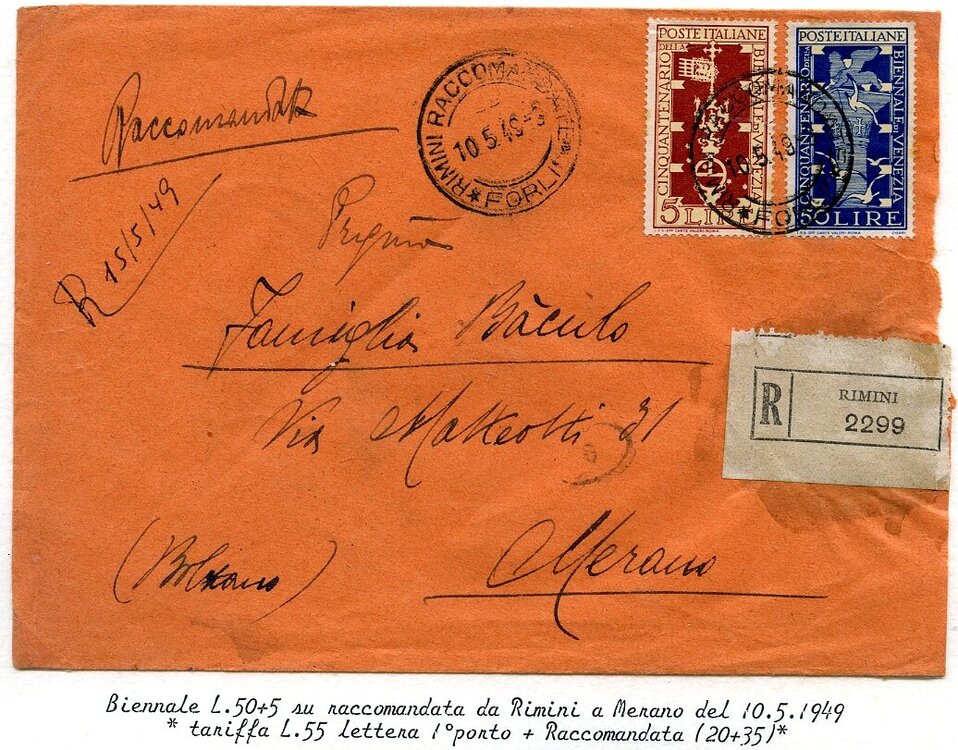 Raccomandata
R 15/5/49
RIMINI RACCOMANDATE
10.5.49
FORLI
POSTE ITALIANE
CINQUANTENARIO DELLA
BIENNALE DI VENEZIA
5 LIRE
I.P.S. OFF. CARTE VALORI - ROMA
POSTE ITALIANE
CINQUANTENARIO DELLA
BIENNALE DI VENEZIA
50 LIRE
I.P.S. OFF. CARTE VALORI - ROMA
10.5.49
Famiglia Bàculo
Via Matteotti 31
R
RIMINI
2299
Merano
(Bolzano)
Biennale L.50+5 su raccomandata da Rimini a Merano del 10.5.1949
* tariffa L.55 lettera 1°porto + Raccomandata (20+35)*